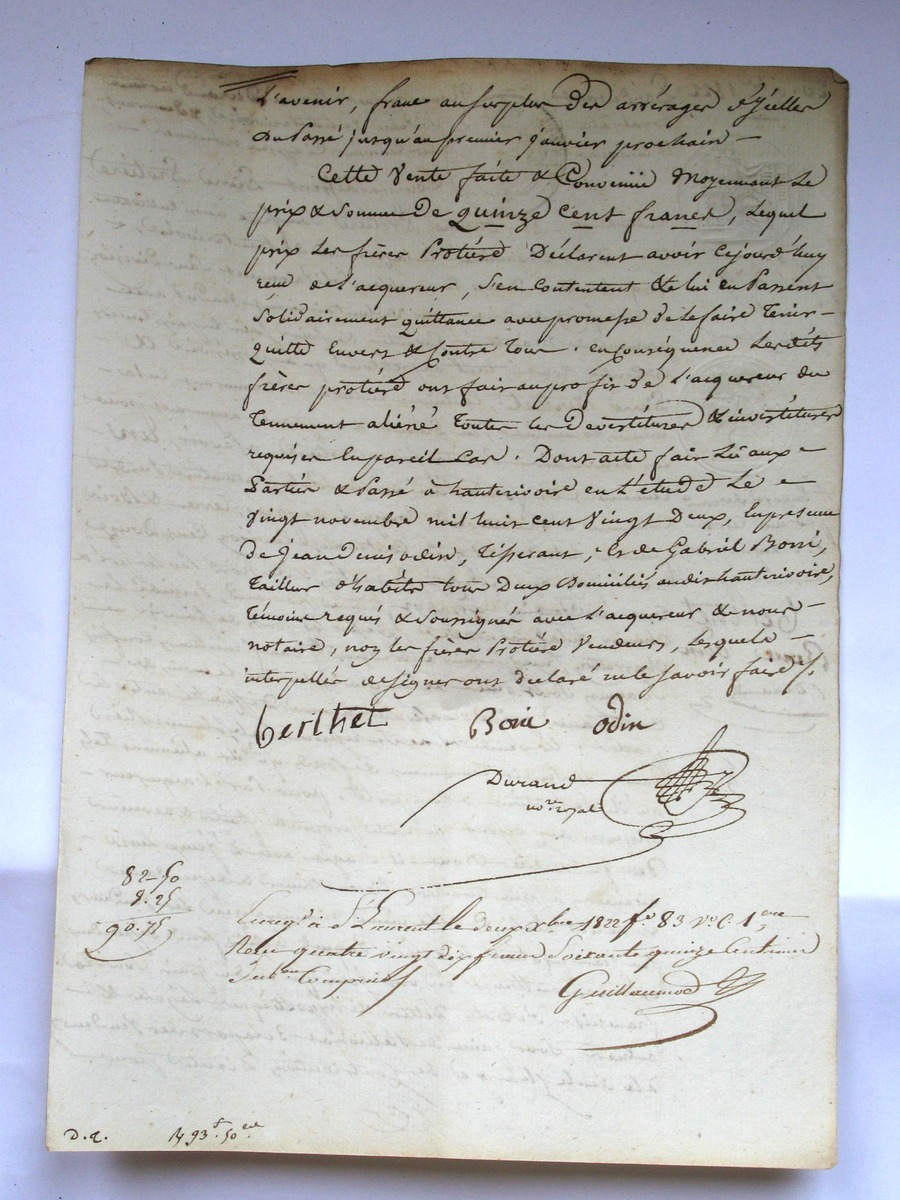 L'avenir, franc au surplus des arrérages d'Ycelles
du Passé jusqu'au premier Janvier prochain -
Cette Vente faite & Convenüe Moyennant Le
prix & Somme De quinze cent francs, Lequel
prix Les frères Protière Déclarent avoir Cejourd'huy
reçu de L'acquereur, S'en Contentent & lui en Passent
Solidairement quittance avec promesse de le faire Tenir-
quitte Envers & Contre Tous. en Conséquence Lesdits
frères protière ont fait au profit de L'acquereur du
Tennement aliéné Toutes les Devestitures & investitures
requises En pareil Cas. Dont acte fait Lû aux -
Parties & Passé à hauterivoire en L'étude Le -
Vingt novembre mil huit cent Vingt Deux, En présence
de Jean Denis odin, Tisserant, & de Gabriel Boni,
Tailleur d'habits tous Deux Domiciliés audit hauterivoire,
Témoins requis & Soussignés avec L'acquereur & nous -
notaire, non les frères Protière Vendeurs, Lesquels -
interpellés de signer ont déclaré ne le savoir faire ./.
berthet Boni odin
Durand
no.re royal
82-50
8.25
90.75
Enreg.é à S.t Laurent le deux Xbre 1822 f.o 83 V.o C. 1.ere
Reçu quatre vingt dix francs Soixante quinze Centimes
Sub.on Comprise
Guillaumod
D.q. 93.f 50.ce